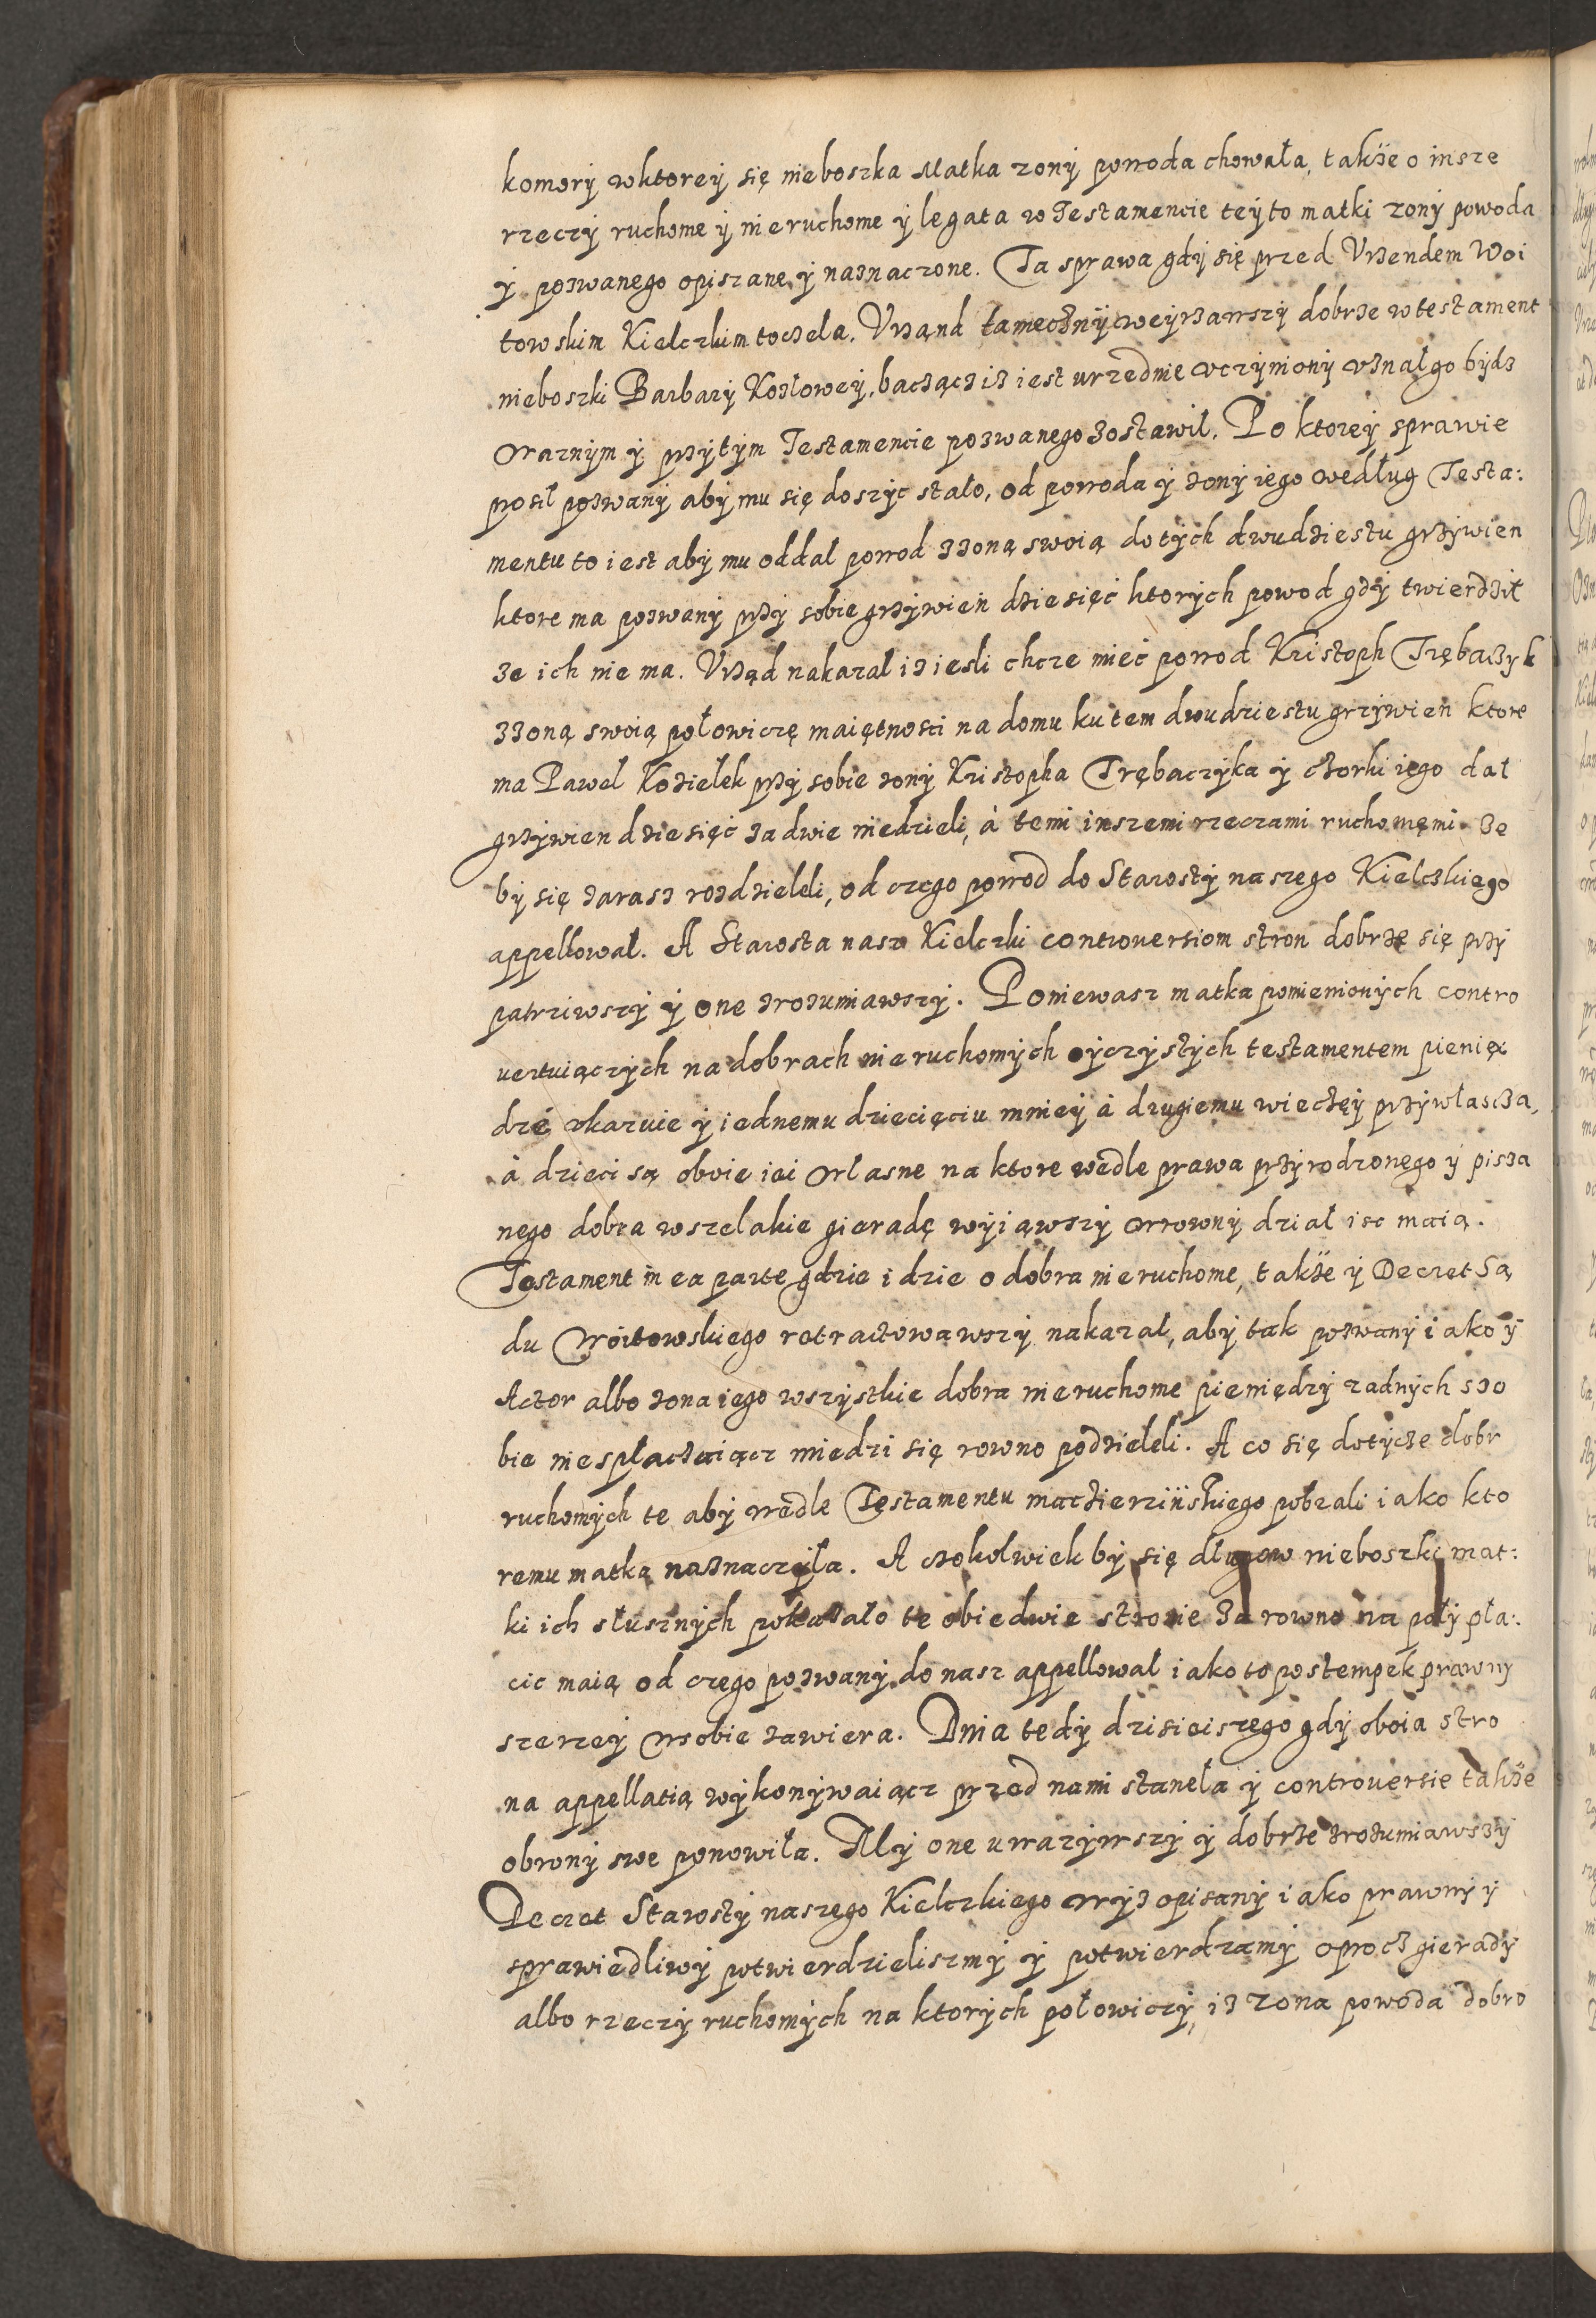 komory wktorey się nieboszka Matka zony powoda chowała, także o insze
rzeczy ruchome y nieruchome y legata w Testamencie teyto matki zony powoda
y pozwanego opiszane y naznaczone. Ta sprawa gdy się przed Vrzendem Woi
towskim Kielczkim toczela. Vrząnd tameczny weyrzawszy dobrze w testament
nieboszki Barbary Kozlowey, bacząc iz iest urzednie vczyniony vznał go bydz
waznym y przytym Testamencie pozwanego zostawil. Po ktorey sprawie
prosil pozwany aby mu się doszyc stało, od powoda y zony iego według Testa:
mentu to iest aby mu oddal powod zzoną swoią do tych dwudziestu grzywien
ktore ma pozwany przy sobie grzywien dziesięć ktorych powod gdy twierdził
ze ich nie ma. Vrząd nakazal iz iesli chcze mieć powod Kristoph Trębaczyk
zzoną swoią połowiczę maiętnosci na domu ku tem dwudziestu grzywien ktore
ma Pawel Kozielek przy sobie zony Kristopha Trębaczyka y czorki iego dał
grzywien dziesięć za dwie niedzieli, à temi inszemi rzeczami ruchomemi ze
by się zarasz rozdzieleli, od czego powod do Starosty naszego Kielczkiego
appellował. A Starosta nasz Kielczki controversiom stron dobrze się przy
patrziwszy y one zrozumiawszy. Poniewasz matka pomienionych contro
vertuiączych na dobrach nieruchomych oyczystych testamentem pienię
dze vkazuie y iednemu dziecięciu mniey à drugiemu wieczey przywlascza,
à dzieci są oboie iei własne na ktore wedle prawa przyrodzonego y pisza
nego dobra wszelakie gieradę wyiąwszy wrowny dział isc maią.
Testament in ea parte gdzie idzie o dobra nieruchome, także y Decret Są
du Woitowskiego retractowawszy nakazał, aby tak pozwany iako y
Actor albo zona iego wszystkie dobra nieruchome pieniędzy zadnych szo
bie nie spłaczaiącz miedzi się rowno podzieleli. A co się dotycze dobr
ruchomych te aby wedle Testamentu maczierzińskiego pobrali iako kto
remu matka naznaczyła. A czokolwiek by się długow nieboszki mat:
ki ich słusznych pokazało te obiedwie stronie za rowno na poły pła:
cic maią od czego pozwany do nasz appellowal iako to postempek prawny
szerzey wsobie zawiera. Dnia tedy dzisieiszego gdy oboia stro
na appellatią wykonywaiącz przed nami staneła y controversie także
obrony swe ponowiła. My one uwazywszy y dobrze zrozumiawszy
Decret Starosty naszego Kielczkiego wyz opisany iako prawny y
sprawiedliwy potwierdzieliszmy y potwierdzamy oprocz gierady
albo rzeczy ruchomych na ktorych połowiczy, iz zona powoda dobro